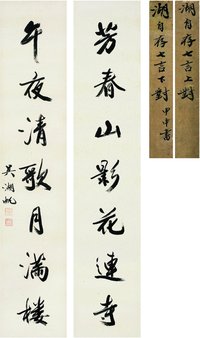 芳春山影花連寺
午夜清歌月滿樓
吳湖帆
湖自存七言上對
湖自存七言下對 甲申書